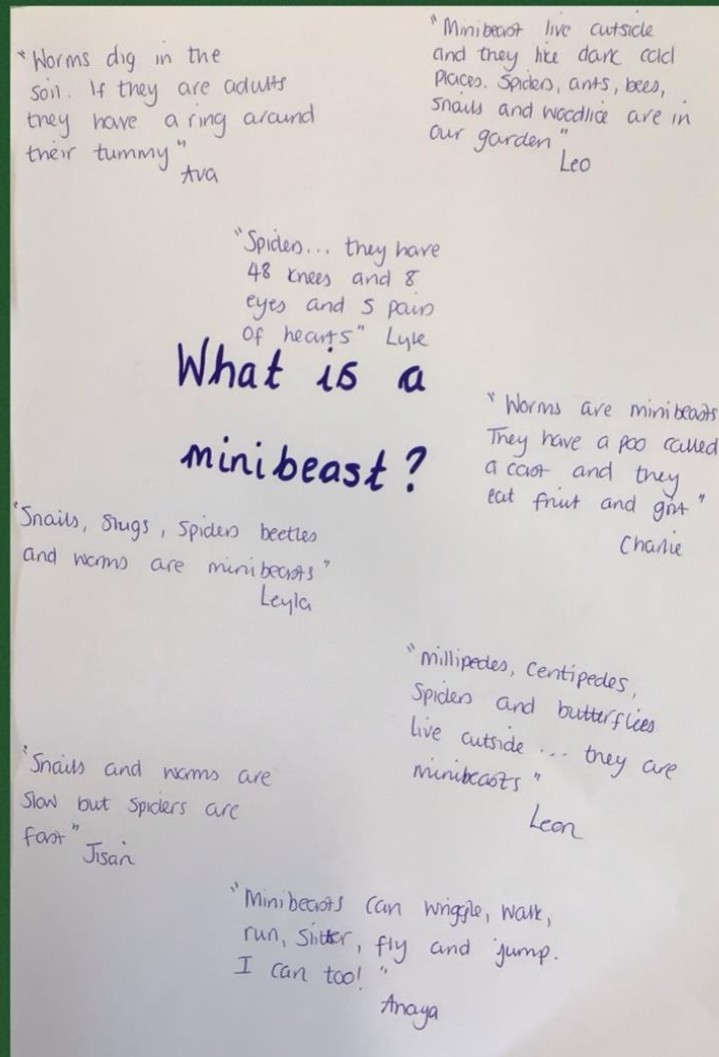 "Worms dig in the
soil. If they are adults
they have a ring around
their tummy"
Ava
"Minibeast live outside
and they like dark cold
places. Spiders, ants, bees,
snails and woodlice are in
our garden"
Leo
"Spiders... they have
48 knees and 8
eyes and 5 pairs
of hearts" Lyle
What is a
minibeast?
"Worms are minibeasts
They have a poo called
a cast and they
eat fruit and grit"
Charlie
"Snails, slugs, spiders beetles
and worms are minibeasts"
Leyla
"millipedes, centipedes,
spiders and butterflies
live outside... they are
minibeasts"
Leon
"Snails and worms are
slow but spiders are
fast"
Jisan
"Minibeasts can wriggle, walk,
run, slitter, fly and jump.
I can too!"
Anaya